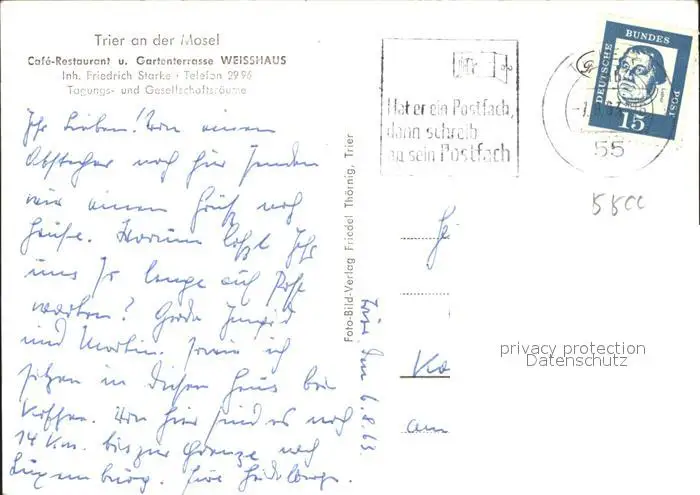 Trier an der Mosel
Café-Restaurant u. Gartenterrasse WEISSHAUS
Inh. Friedrich Starke · Telefon 2996
Tagungs- und Gesellschaftsräume
Ihr Lieben! Von einem
Abstecher nach hier senden
wir einen Gruß nach
Hause. Warum laßt Ihr
uns so lange auf Post
warten? Gerda, Ingrid
und Martin. sowie ich
sitzen in diesem Haus bei
Kaffee. Von hier sind es noch
14 Km. bis zur Grenze nach
Luxemburg.
Foto-Bild-Verlag Friedel Thörnig, Trier
Trier, den 6.8.63.
Hat er ein Postfach,
dann schreib
an sein Postfach
55
DEUTSCHE BUNDESPOST
15
Ko
am
privacy protection
Datenschutz